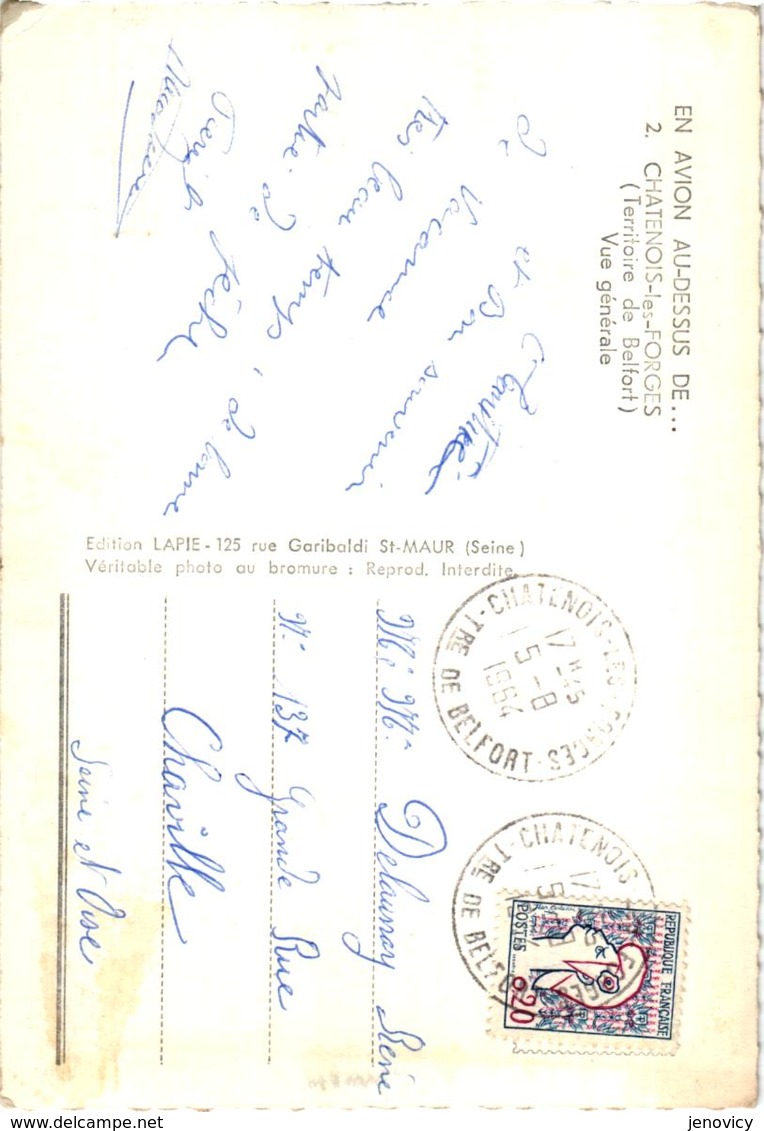 EN AVION AU-DESSUS DE...
2. CHATENOIS-les-FORGES
(Territoire de Belfort)
Vue générale
et Bon souvenir
de Vacance
très beau temps
partie de
Edition LAPIE - 125 rue Garibaldi St-MAUR (Seine)
Véritable photo au bromure : Reprod. Interdite
CHATENOIS-LES-FORGES
17H45
5-8
1964
TRE DE BELFORT
CHATENOIS
17
5
TRE DE BELFO
REPUBLIQUE FRANÇAISE
POSTES
0,20
Mr Mme Delaunay René
N° 137 Grande Rue
Chaville
Seine et Oise
jenovicy